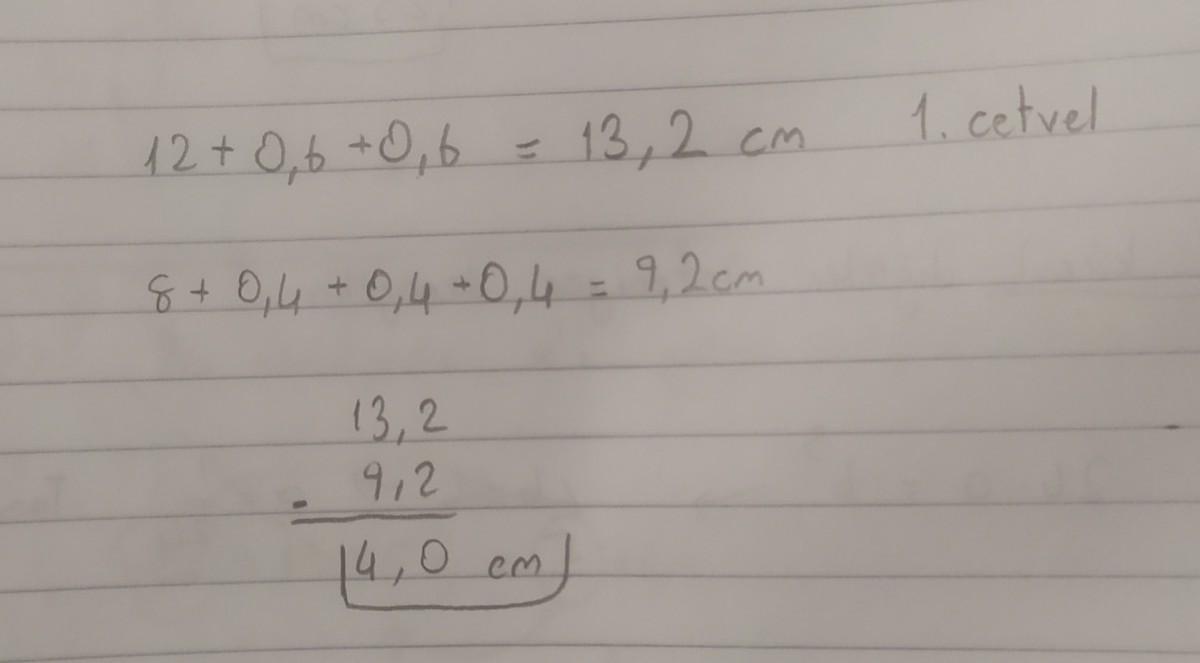 12 + 0,6 + 0,6 = 13,2 cm 1. cetvel
8 + 0,4 + 0,4 + 0,4 = 9,2 cm
13,2
- 9,2
4,0 cm